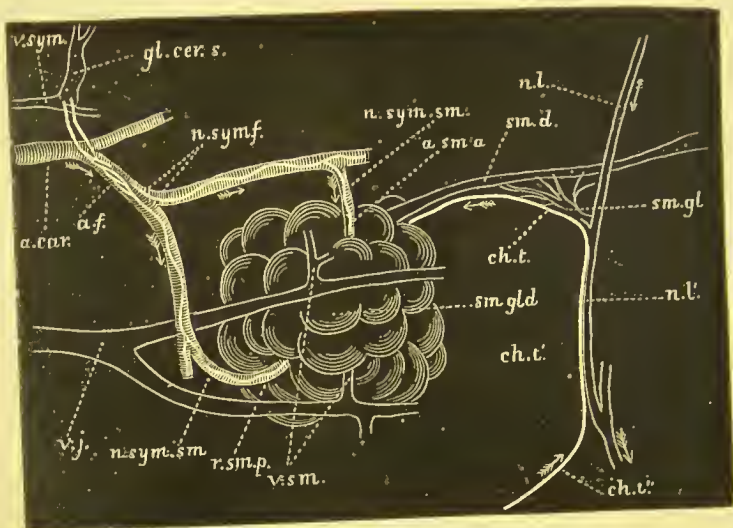 v.sym.
gl.cer.s.
n.l.
n.symf.
n.sym.sm.
a.sm.a
sm.d.
a.car.
a.f.
sm.gl
ch.t.
n.l'.
sm.gld
ch.t'.
v.j.
n.sym.sm
r.sm.p.
v.sm.
ch.t''.